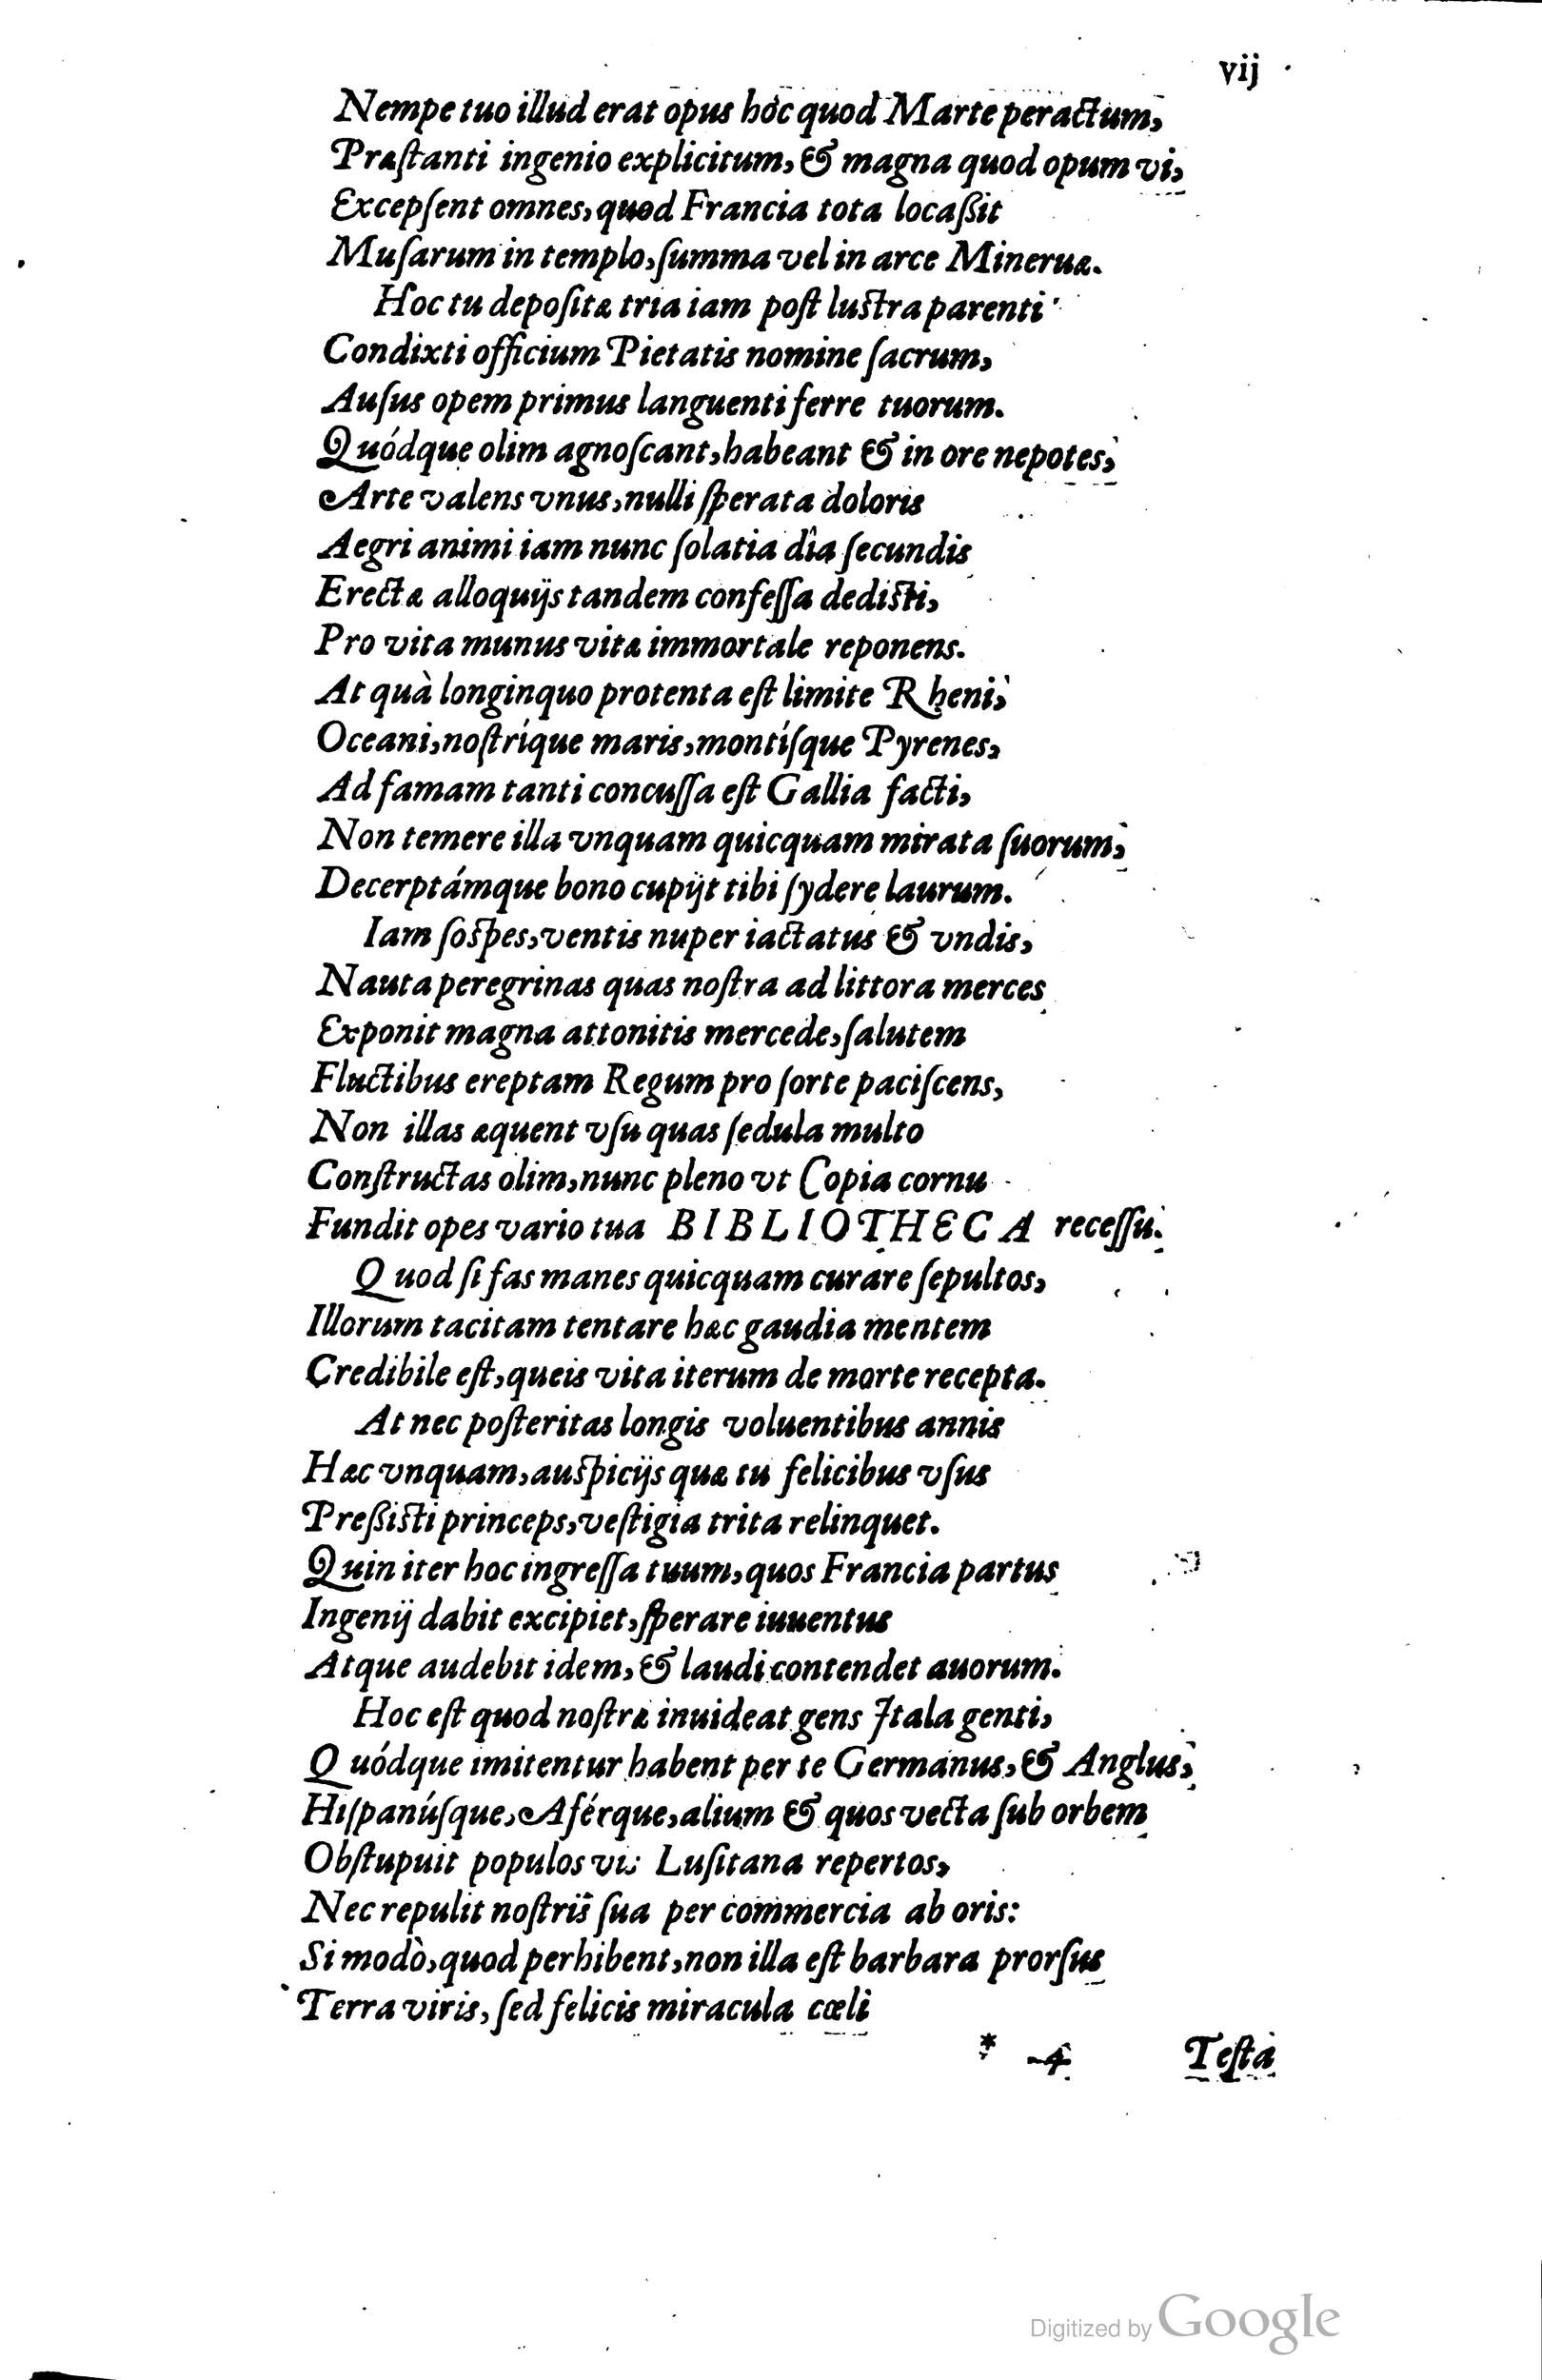 vij
Nempe tuo illud erat opus hoc quod Marte peractum,
Præſtanti ingenio explicitum, & magna quod opum vi,
Excepſent omnes, quod Francia tota locaßit
Muſarum in templo, ſumma vel in arce Mineruæ.
Hoc tu depoſitæ tria iam poſt luſtra parenti
Condixti officium Pietatis nomine ſacrum,
Auſus opem primus languenti ferre tuorum.
Quódque olim agnoſcant, habeant & in ore nepotes,
Arte valens vnus, nulli ſperata doloris
Aegri animi iam nunc ſolatia dîa ſecundis
Erectæ alloquijs tandem confeſſa dediſti,
Pro vita munus vitæ immortale reponens.
At quà longinquo protenta eſt limite Rheni,
Oceani, noſtríque maris, montíſque Pyrenes,
Ad famam tanti concuſſa eſt Gallia facti,
Non temere illa vnquam quicquam mirata ſuorum,
Decerptámque bono cupijt tibi ſydere laurum.
Iam ſoſpes, ventis nuper iactatus & vndis,
Nauta peregrinas quas noſtra ad littora merces
Exponit magna attonitis mercede, ſalutem
Fluctibus ereptam Regum pro ſorte paciſcens,
Non illas æquent vſu quas ſedula multo
Conſtructas olim, nunc pleno vt Copia cornu
Fundit opes vario tua BIBLIOTHECA receſſu.
Quod ſi fas manes quicquam curare ſepultos,
Illorum tacitam tentare hæc gaudia mentem
Credibile eſt, queis vita iterum de morte recepta.
At nec poſteritas longis voluentibus annis
Hæc vnquam, auſpicijs quæ tu felicibus vſus
Preßiſti princeps, veſtigia trita relinquet.
Quin iter hoc ingreſſa tuum, quos Francia partus
Ingenij dabit excipiet, ſperare iuuentus
Atque audebit idem, & laudi contendet auorum.
Hoc eſt quod noſtræ inuideat gens Itala genti,
Quódque imitentur habent per te Germanus, & Anglus,
Hiſpanúſque, Aférque, alium & quos vecta ſub orbem
Obſtupuit populos vis Luſitana repertos,
Nec repulit noſtris ſua per commercia ab oris:
Si modò, quod perhibent, non illa eſt barbara prorſus
Terra viris, ſed felicis miracula cœli
* 4 Teſta
Digitized by Google